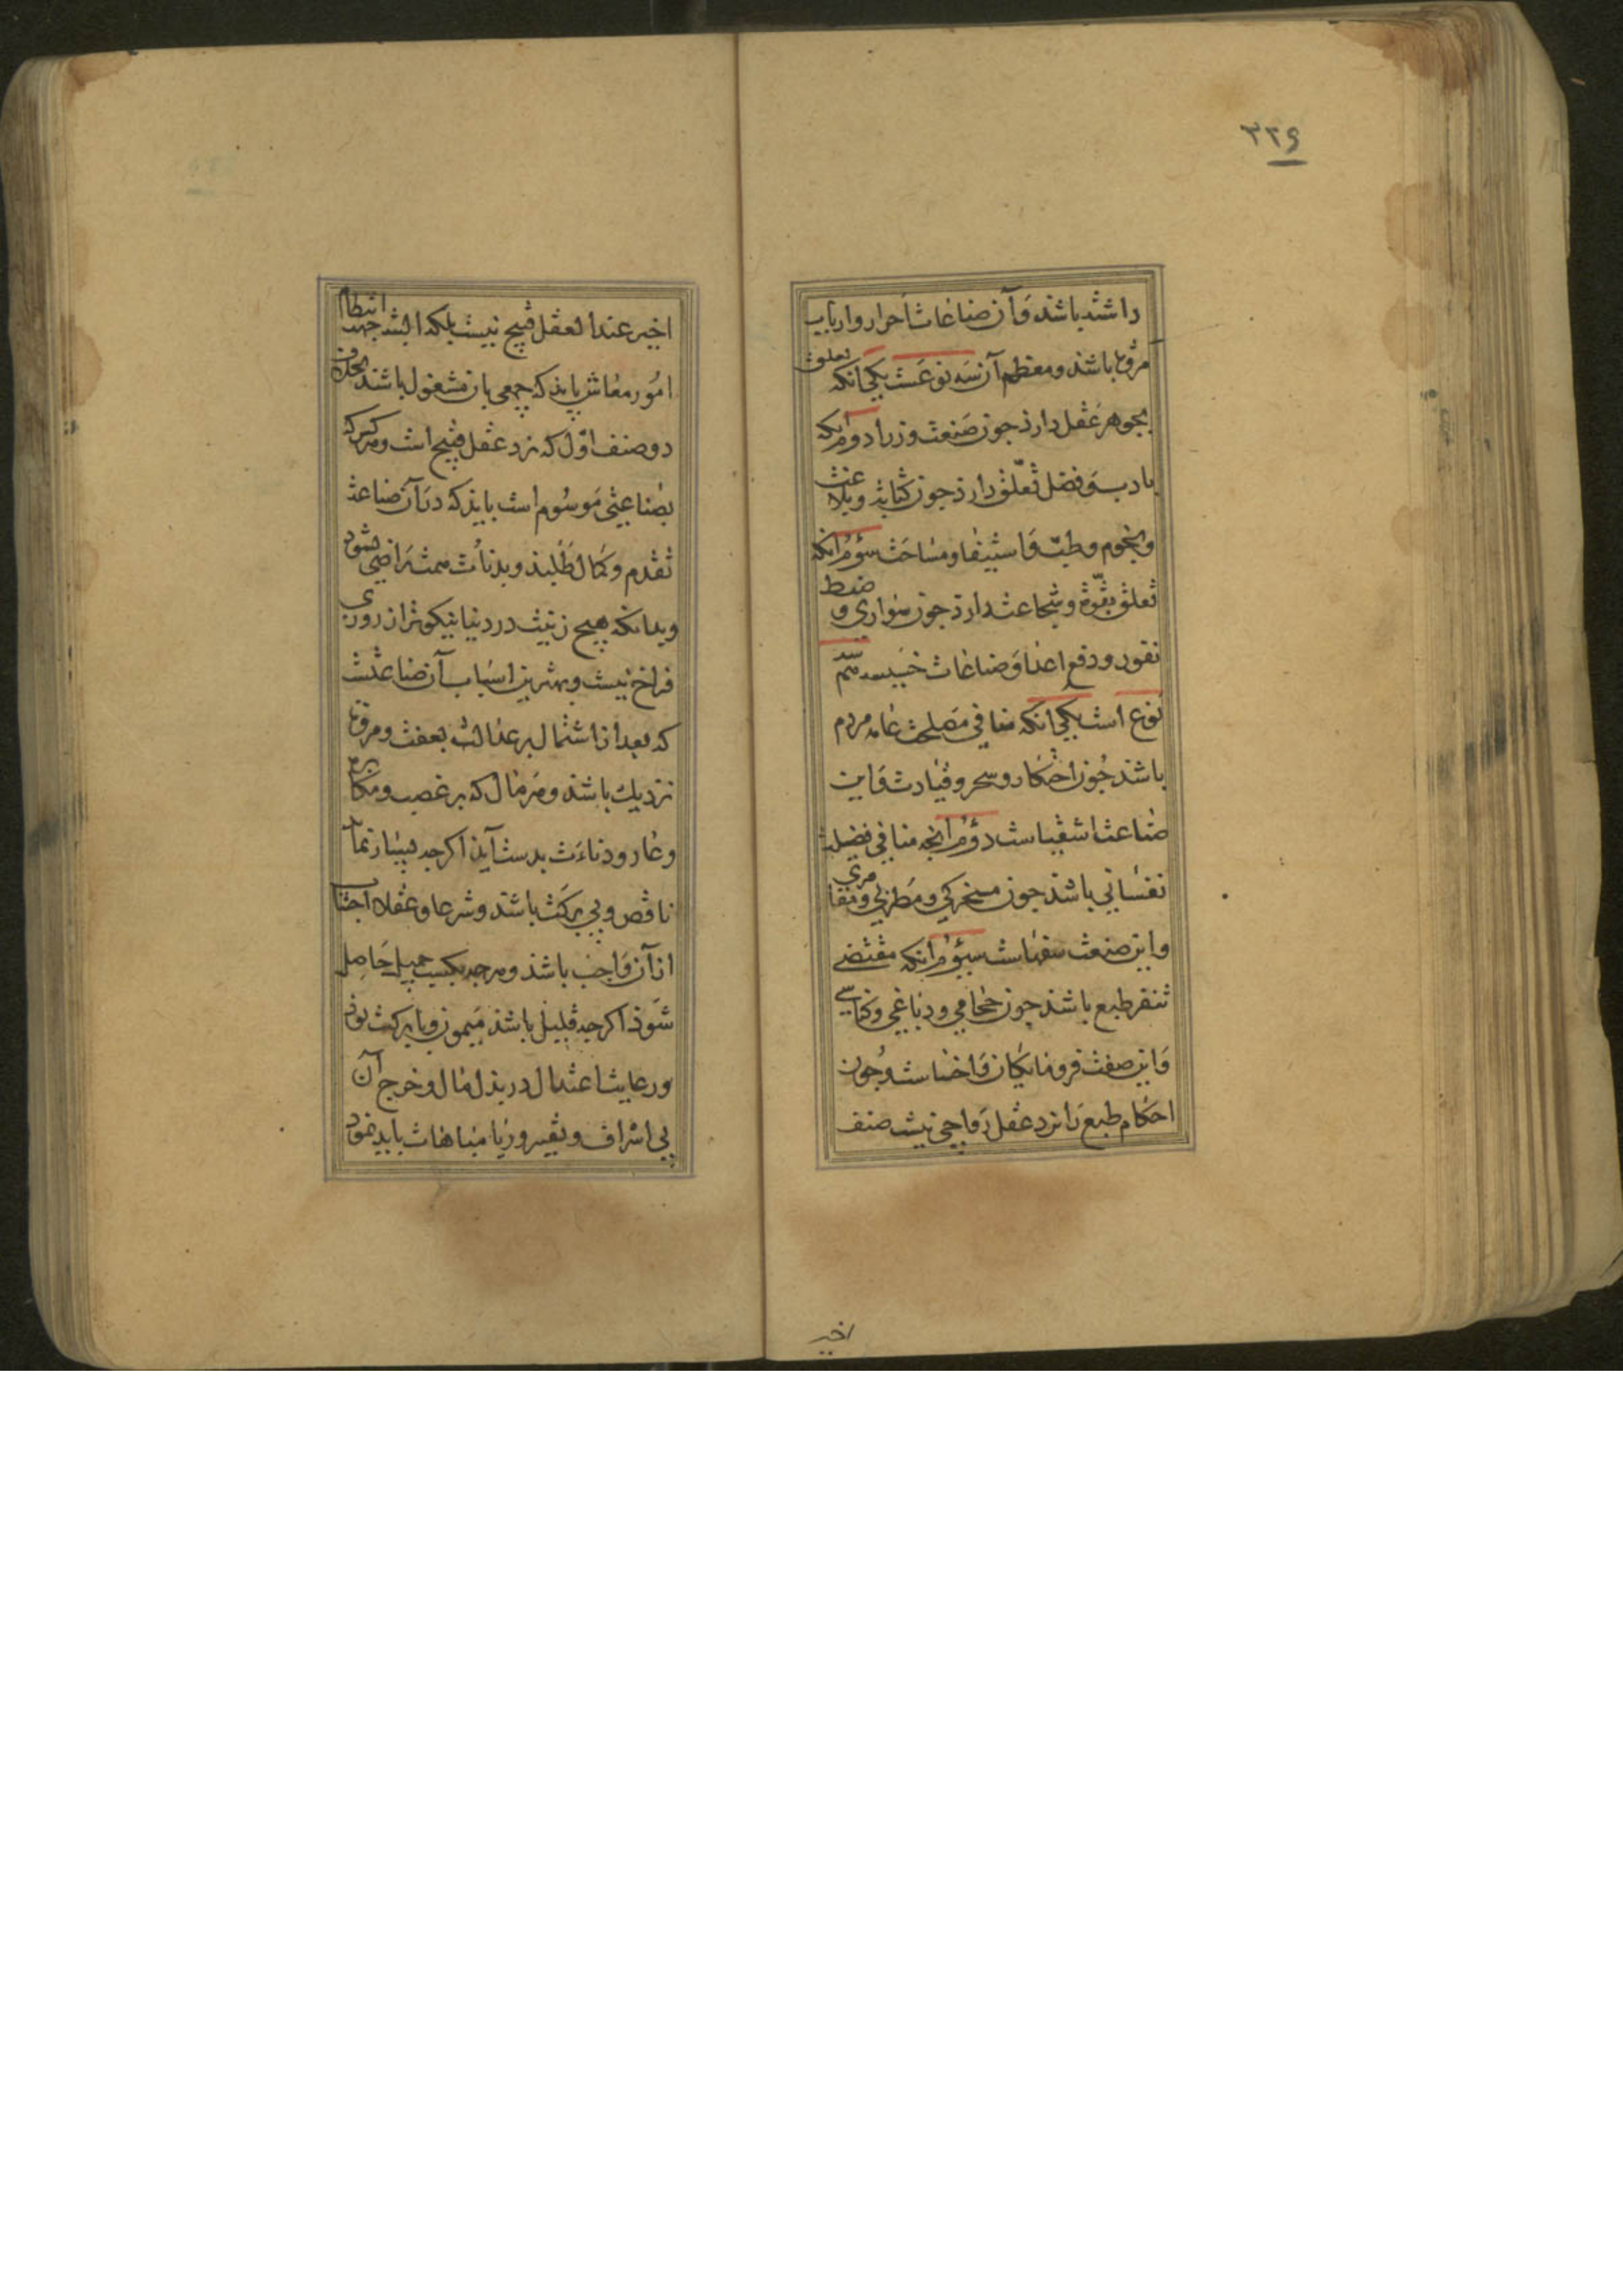 ۳۲۶
داشته باشد و آن صناعات احرار و ارباب
مروّت باشد و معظم آن سه نوعست یکی آنکه تعلق
بجوهر عقل دارد چون صنعت وزرا دوم آنکه
بادب و فضل تعلّق دارد چون کتابت و بلاغت
و نجوم و طبّ و استیفا و مساحت سوّم آنکه
تعلق بقوّت و شجاعت دارد چون سواری و ضبط
ثغور و دفع اعدا و صناعات خسیسه سه هم
نوع است یکی آنکه منافی مصلحت عامه مردم
باشد چون احتکار و سحر و قیادت و این
صناعت اشقیاست دوّم آنچه منافی فضیلت
نفسانی باشد چون مسخرکی و مطربی و مقامری
و این صنعت سفهاست سوّم آنکه مقتضی
تنفر طبع باشد چون حجامی و دباغی و کناسی
و این صفت فرومایکان و اخساست و چون
احکام طبع را نزد عقل رواجی نیست صنف
اخیر
اخیر عند العقل قبیح نیست بلکه البته جهت انتظام
امور معاش باید که جمعی بآن مشغول باشند بخلاف
دو صنف اوّل که نزد عقل قبیح است و هر کس که
بصناعتی موسوم است باید که در آن صناعت
تقدم و کمال طلبد و بدنائت همت راضی نشود
و بدانکه هیچ زینت در دنیا نیکوتر از روزی
فراخ نیست و بهترین اسباب آن صناعتست
که بعد از اشتمال بر عدالت بعفت و مروّت
نزدیک باشد و هر مال که بر غصب و مکابره
و عار و دناءت بدست آید اکرچه بسیار نماید
ناقص و بی برکت باشد و شرعا و عقلا اجتناب
از آن واجب باشد و هرچه بکسب جمیل حاصل
شود اکرچه قلیل باشد میمون و با برکت بود
و رعایت اعتدال در بذل مال و خرج آن
بی اسراف و تقتیر و ریا مباهات باید نمود